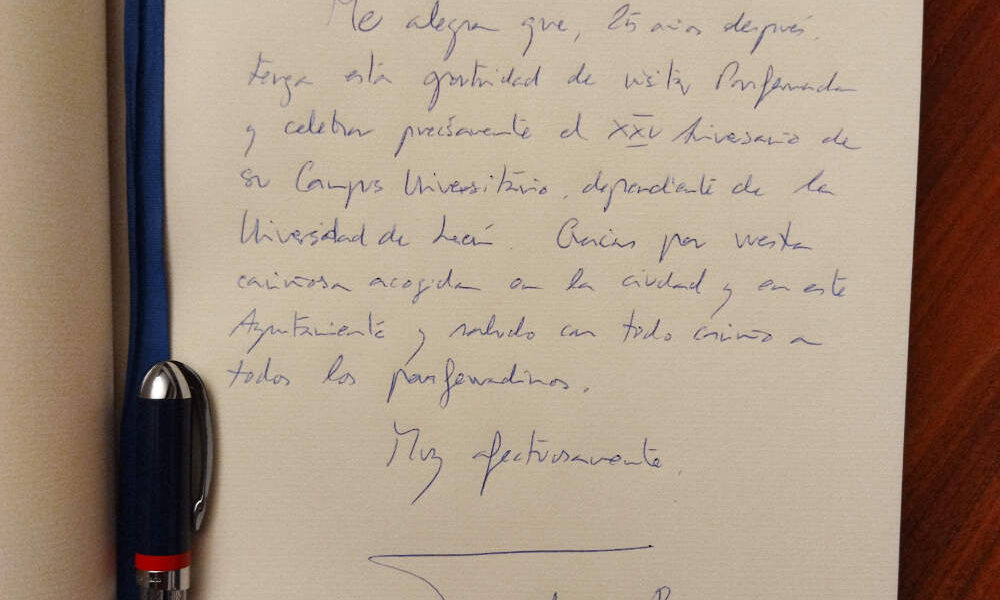 Me alegra que, 25 años después,
tenga esta oportunidad de visitar Ponferrada
y celebrar precisamente el XXV Aniversario de
su Campus Universitario, dependiente de la
Universidad de León. Gracias por vuestra
cariñosa acogida en la ciudad y en este
Ayuntamiento y saludo con todo cariño a
todos los ponferradinos.
Muy afectuosamente,